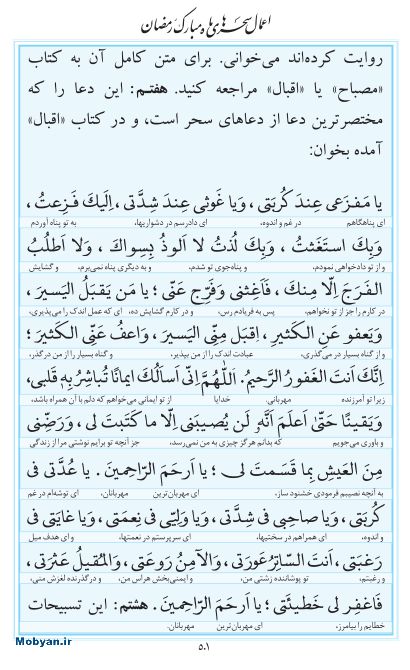 اعمال سحرهای ماه مبارک رمضان
روایت کرده‌اند می‌خوانی. برای متن کامل آن به کتاب
«مصباح» یا «اقبال» مراجعه کنید. هفتم: این دعا را که
مختصرترین دعا از دعاهای سحر است، و در کتاب «اقبال»
آمده بخوان:
یا مَفزَعی عِندَ کُربَتی، وَیا غَوثی عِندَ شِدَّتی، اِلَیکَ فَزِعتُ،
ای پناهگاهم در غم و اندوه، ای دادرسم در دشواریها، به تو پناه آوردم
وَبِکَ استَغَثتُ، وَبِکَ لُذتُ لا اَلوذُ بِسِواکَ، وَلا اَطلُبُ
و از تو دادخواهی نمودم، و پناه‌جوی تو شدم، و به دیگری پناه نمی‌برم، و گشایش
الفَرَجَ اِلّا مِنکَ، فَاَغِثنی وَفَرِّج عَنّی؛ یا مَن یَقبَلُ الیَسیرَ،
در کارم را جز از تو نخواهم، پس به فریادم رس، و در کارم گشایش ده، ای که عمل اندک را می‌پذیری،
وَیَعفو عَنِ الکَثیرِ، اِقبَل مِنِّی الیَسیرَ، وَاعفُ عَنِّی الکَثیرَ؛
و از گناه بسیار در می‌گذری، عبادت اندک را از من بپذیر، و گناه بسیار را از من درگذر،
اِنَّکَ اَنتَ الغَفورُ الرَّحیمُ. اَللّهُمَّ اِنّی اَسأَلُکَ ایمانًا تُباشِرُ بِهِ قَلبی،
زیرا تو آمرزنده مهربانی. خدایا از تو ایمانی می‌خواهم که دلم با آن همراه باشد،
وَیَقینًا حَتّی اَعلَمَ اَنَّهُ لَن یُصیبَنی اِلّا ما کَتَبتَ لی، وَرَضِّنی
و باوری می‌جویم که بدانم هرگز چیزی به من نمی‌رسد، جز آنچه تو برایم نوشتی مرا از زندگی
مِنَ العَیشِ بِما قَسَمتَ لی؛ یا اَرحَمَ الرّاحِمینَ. یا عُدَّتی فی
به آنچه نصیبم فرمودی خشنود ساز، ای مهربان‌ترین مهربانان. ای توشه‌ام در غم
کُربَتی، وَیا صاحِبی فی شِدَّتی، وَیا وَلِیّی فی نِعمَتی، وَیا غایَتی فی
و اندوه، ای همراهم در سختیها، ای سرپرستم در نعمتها، و ای هدف میل
رَغبَتی، اَنتَ السّاتِرُ عَورَتی، وَالآمِنُ رَوعَتی، وَالمُقیلُ عَثرَتی،
و رغبتم، تو پوشاننده زشتی من، و ایمنی‌بخش هراس من، و در گذرنده لغزش منی،
فَاغفِر لی خَطیئَتی؛ یا اَرحَمَ الرّاحِمینَ. هشتم: این تسبیحات
خطایم را بیامرز، ای مهربان‌ترین مهربانان.
۵۰۱
Mobyan.ir